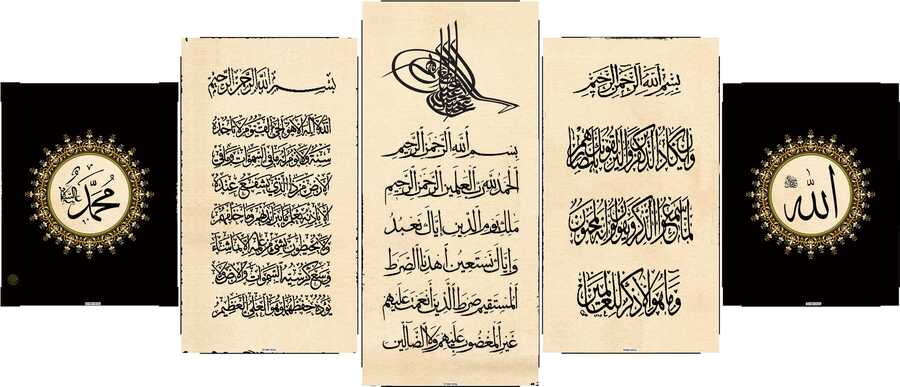 الله
بسم الله الرحمن الرحيم
وإن يكاد الذين كفروا ليزلقونك بأبصارهم
لما سمعوا الذكر ويقولون إنه لمجنون
وما هو إلا ذكر للعالمين
بسم الله الرحمن الرحيم
الحمد لله رب العلمين الرحمن الرحيم
ملك يوم الدين إياك نعبد
وإياك نستعين اهدنا الصرط
المستقيم صرط الذين أنعمت عليهم
غير المغضوب عليهم ولا الضالين
بسم الله الرحمن الرحيم
الله لا إله إلا هو الحي القيوم لا تأخذه
سنة ولا نوم له ما في السموات وما في
الأرض من ذا الذي يشفع عنده
إلا بإذنه يعلم ما بين أيديهم وما خلفهم
ولا يحيطون بشيء من علمه إلا بما شاء
وسع كرسيه السموات والأرض ولا
يؤده حفظهما وهو العلي العظيم
محمد